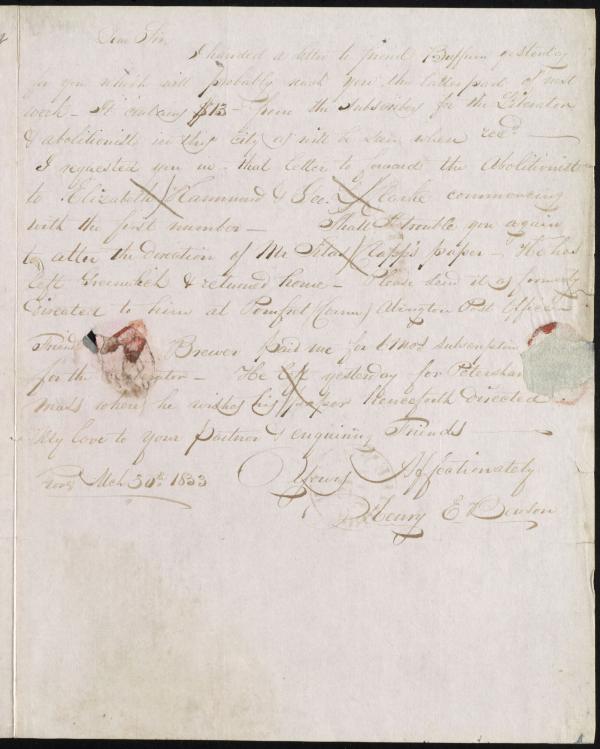 Dear Sir,
I handed a letter to friend Buffum yesterday
for you which will probably reach you the latter part of next
week - It contains $13 - from the Subscribers for the Liberator
& abolitionist in this City as will be seen when recd.
I requested you in that letter to forward the Abolitionist
to Elizabeth Hammond & Geo. L. Clarke commencing
with the first number - Shall I trouble you again
to alter the direction of Mr Clapp's paper - He has
left Greenwich & returned home - Please send it as formerly
directed to him at Pomfret (Conn) Abington Post Office -
Friend Brewer paid me for 6 mos subscription
for the - He left yesterday for Petersham
Mass where he wishes his paper henceforth directed
My love to your partner & enquiring Friends
Yours Affectionately
Prov. Mch 30th 1833
Henry E Benson